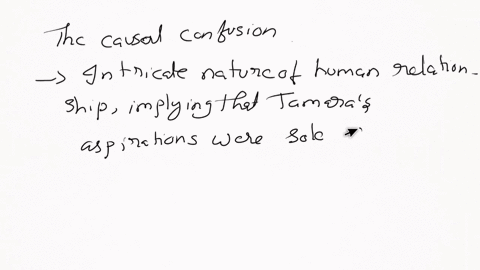 The causal confusion
→ Intricate nature of human relation-
ship, implying that Tamara's
aspirations were sole